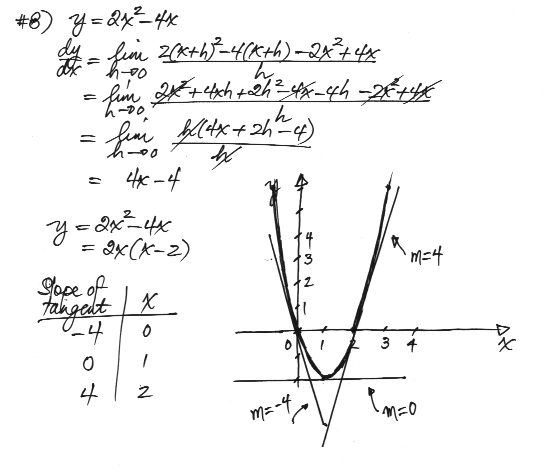 #8) y = 2x² - 4x
dy/dx = lim h→0 2(x+h)² - 4(x+h) - 2x² + 4x / h
= lim h→0 2x² + 4xh + 2h² - 4x - 4h - 2x² + 4x / h
= lim h→0 h(4x + 2h - 4) / h
= 4x - 4
y = 2x² - 4x
= 2x(x - 2)
Slope of tangent | x
-4 | 0
0 | 1
4 | 2
y
4
3
2
1
m=4
0 1 2 3 4 x
m=-4
m=0